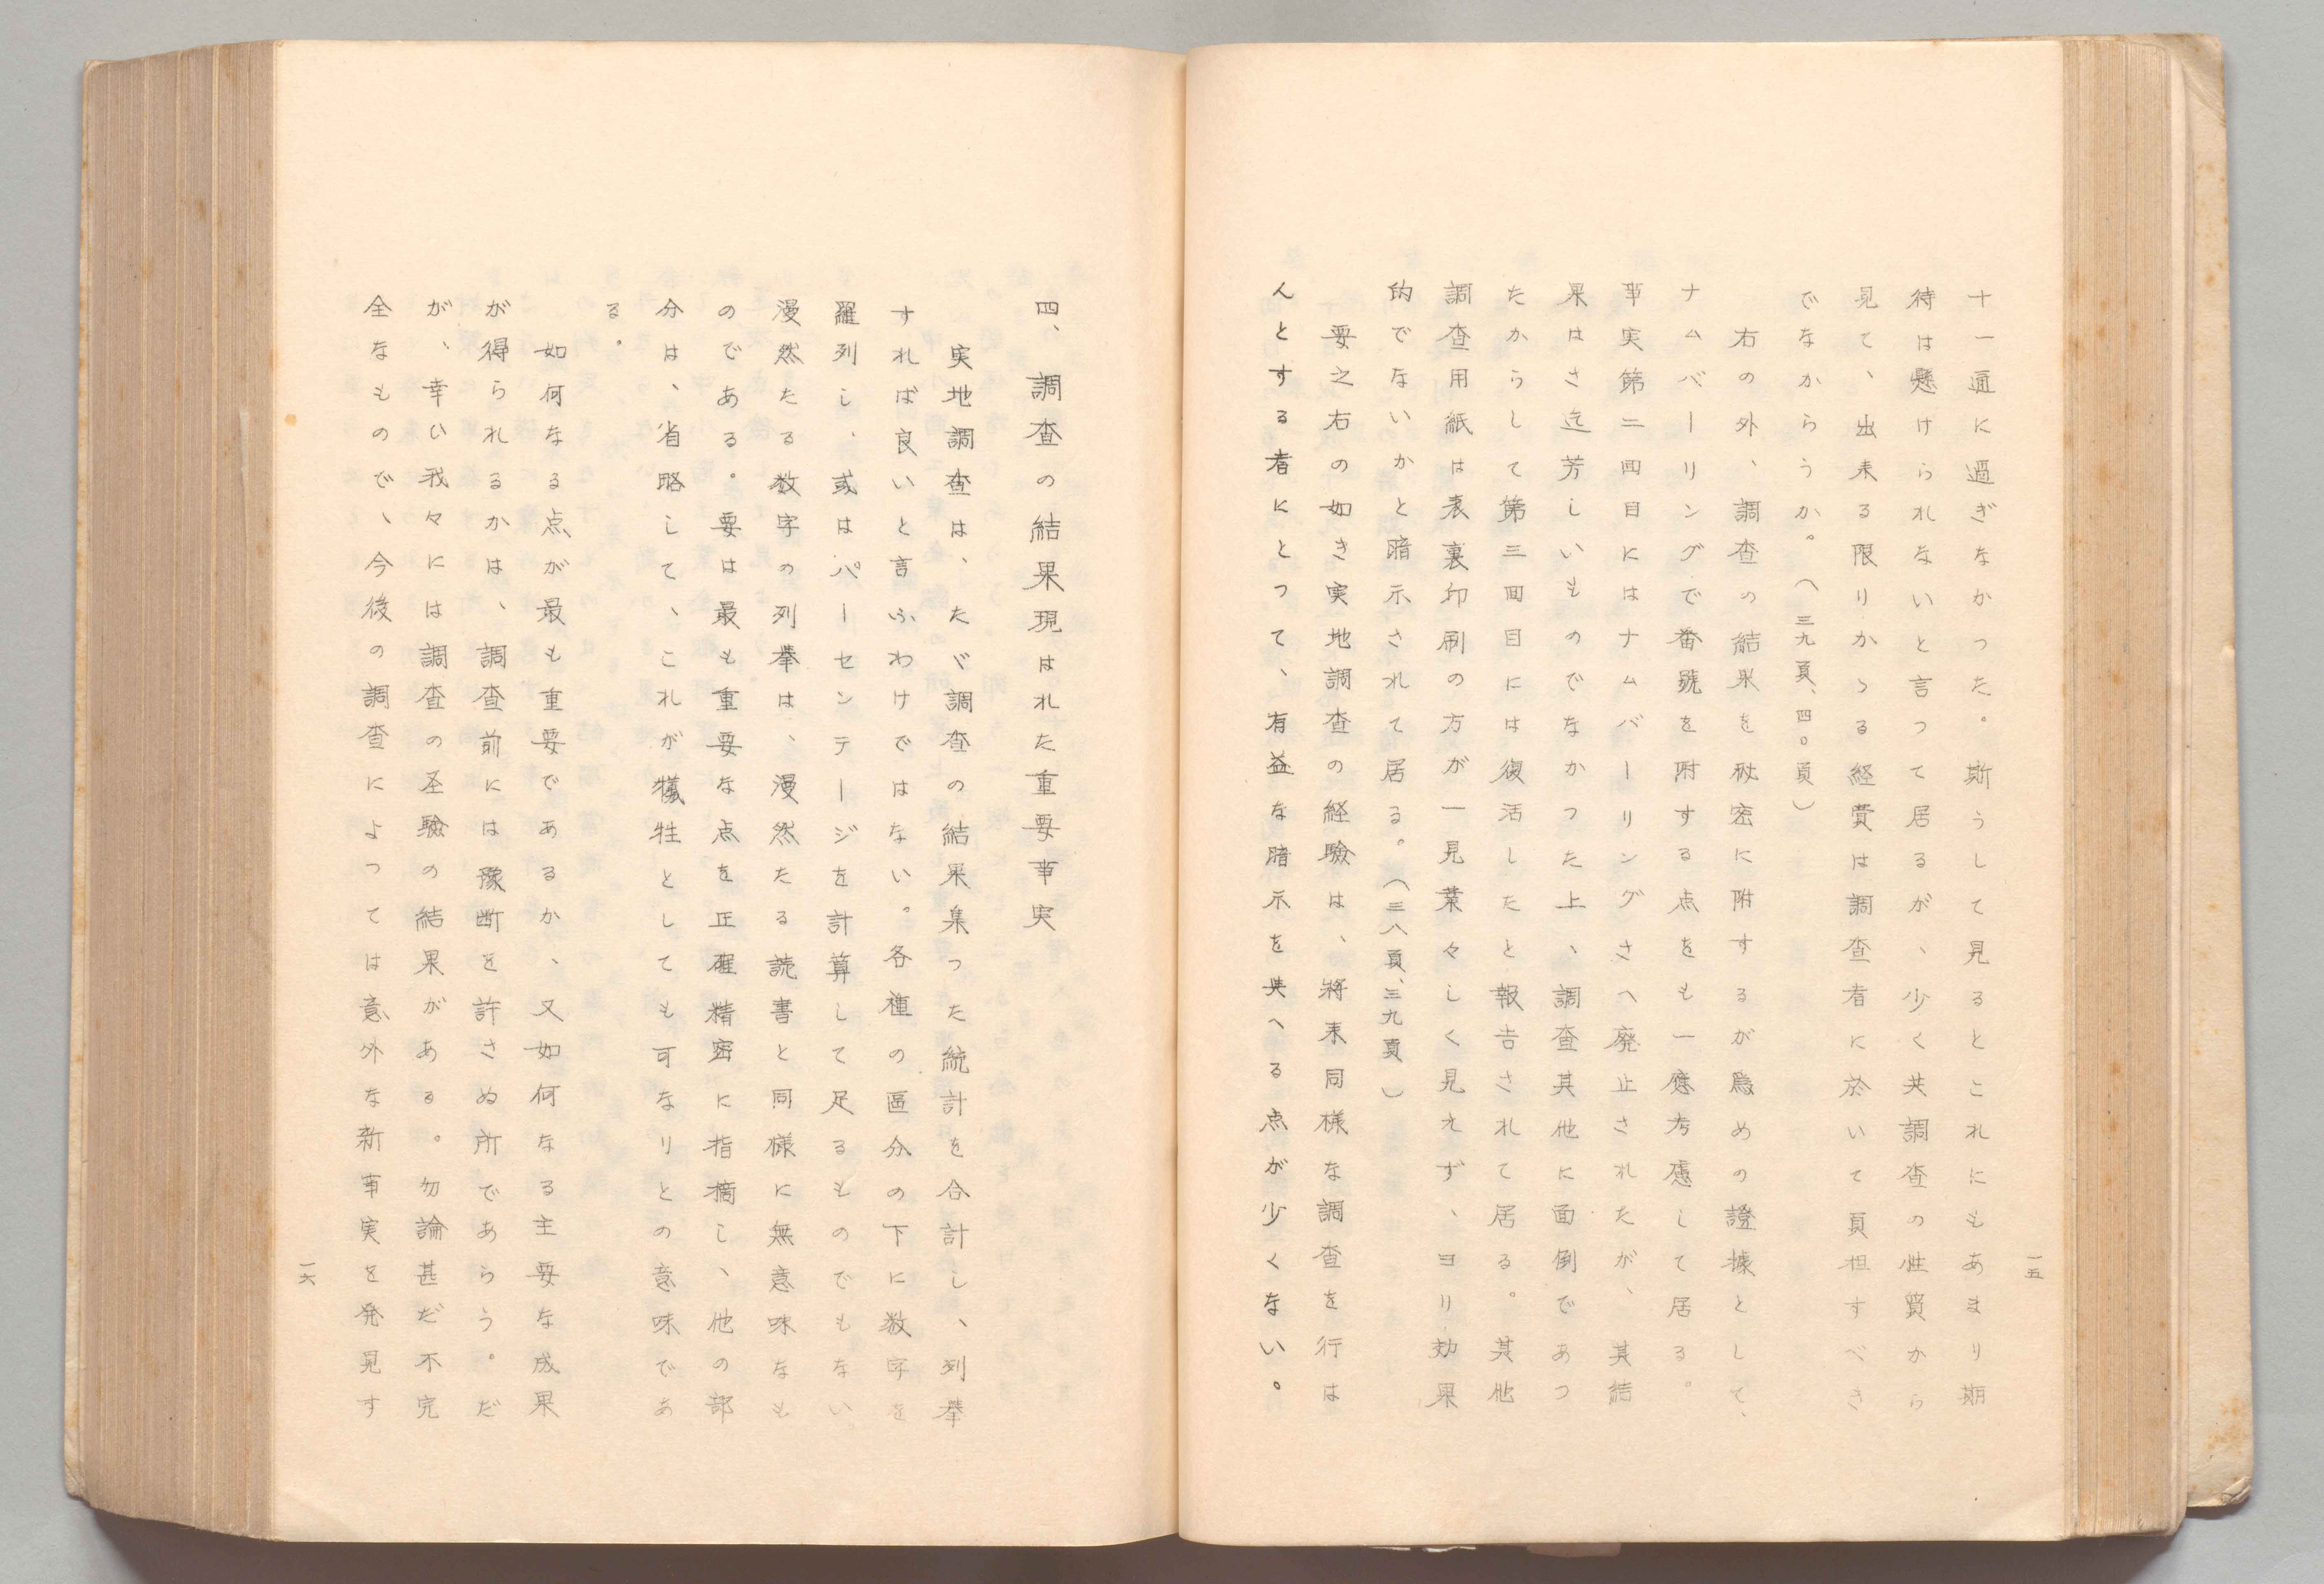 十一通に過ぎなかつた。斯うして見るとこれにもあまり期
待は懸けられないと言つて居るが、少く共調査の性質から
見て、出来る限りかゝる経費は調査者に於いて負担すべき
でなからうか。（三九頁、四〇頁）
右の外、調査の結果を秘密に附するが為めの證據として、
ナムバーリングで番號を附する点をも一應考慮して居る。
事実第二回目にはナムバーリングさへ廃止されたが、其結
果はさ迄芳しいものでなかつた上、調査其他に面倒であつ
たからして第三回目には復活したと報告されて居る。其他
調査用紙は表裏印刷の方が一見葉々しく見えず、ヨリ効果
的でないかと暗示されて居る。（三八頁、三九頁）
要之右の如き実地調査の経驗は、將来同様な調査を行は
んとする者にとつて、有益な暗示を與へる点が少くない。
一五
四、調査の結果現はれた重要事実
実地調査は、たゞ調査の結果集つた統計を合計し、列挙
すれば良いと言ふわけではない。各種の區分の下に数字を
羅列し、或はパーセンテージを計算して足るものでもない。
漫然たる数字の列挙は、漫然たる読書と同様に無意味なも
のである。要は最も重要な点を正確精密に指摘し、他の部
分は、省略して、これが犠牲としても可なりとの意味であ
る。
如何なる点が最も重要であるか、又如何なる主要な成果
が得られるかは、調査前には豫断を許さぬ所であらう。だ
が、幸ひ我々には調査の圣驗の結果がある。勿論甚だ不完
全なもので、今後の調査によつては意外な新事実を発見す
一六